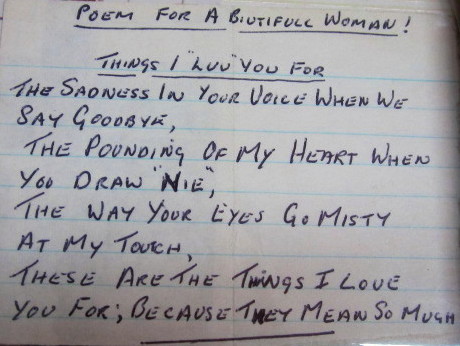 POEM FOR A BIUTIFULL WOMAN!
THINGS I "LUV" YOU FOR
THE SADNESS IN YOUR VOICE WHEN WE
SAY GOODBYE,
THE POUNDING OF MY HEART WHEN
YOU DRAW "NIE",
THE WAY YOUR EYES GO MISTY
AT MY TOUCH,
THESE ARE THE THINGS I LOVE
YOU FOR; BECAUSE THEY MEAN SO MUGH